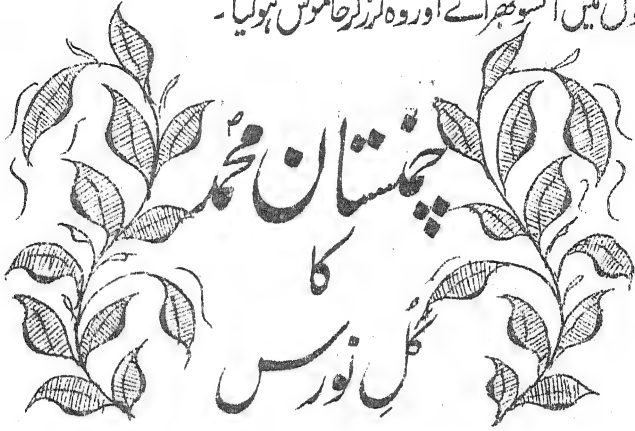 میں آنسو بھر آئے اور وہ لرز کر خاموش ہوگیا ۔
چمنستانِ محمدؐ
کا
گلِ نورس